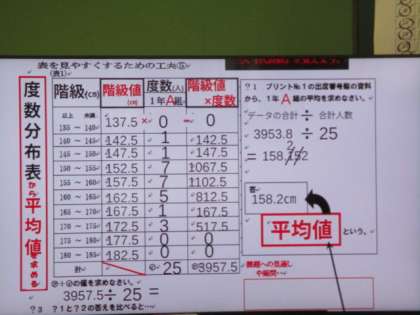 表を見やすくするための工夫⑤
(表1)
度数分布表から平均値を求める
階級(cm) 階級値(cm) 度数(人) 1年A組 階級値×度数
以上 未満
135 ~ 140 137.5 × 0 = 0
140 ~ 145 142.5 1 142.5
145 ~ 150 147.5 1 147.5
150 ~ 155 152.5 7 1067.5
155 ~ 160 157.5 7 1102.5
160 ~ 165 162.5 5 812.5
165 ~ 170 167.5 1 167.5
170 ~ 175 172.5 3 517.5
175 ~ 180 177.5 0 0
180 ~ 185 182.5 0 0
計 25 3957.5
の値を求めなさい。
3957.5÷ 25 =
?3 ?1と?2の答えを比べると…
?1 プリント№1の出席番号順の資料
から、1年 A 組の平均を求めなさい。
データの合計 ÷ 合計人数
3953.8 ÷ 25
= 158.152
2
答
158.2cm
平均値 という。
課題への見通し
や疑問…